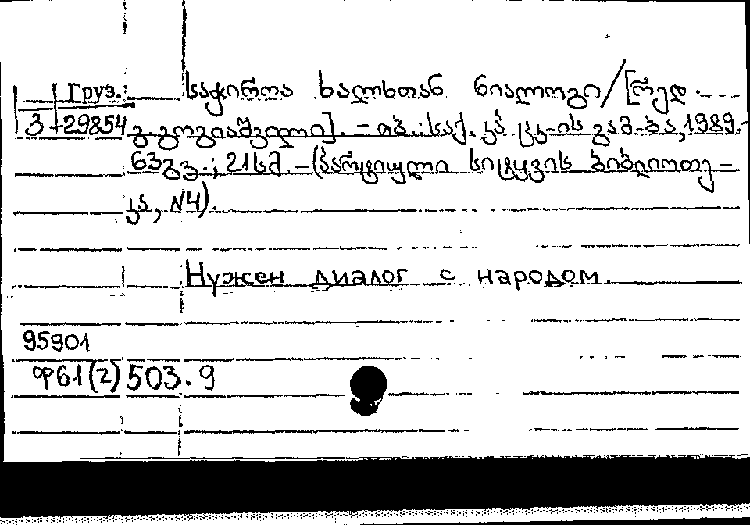 Груз. საჭიროა ხალხთან დიალოგი/[რედ.
3-29854 გ. გოგიაშვილი]. - თბ.: საქ. კპ ცკ-ის გამ-ბა, 1989.-
63გვ.; 21სმ. - (პარტიული სიტყვის ბიბლიოთე-
კა, N4).
Нужен диалог с народом
95901
Ф61(2)503.9